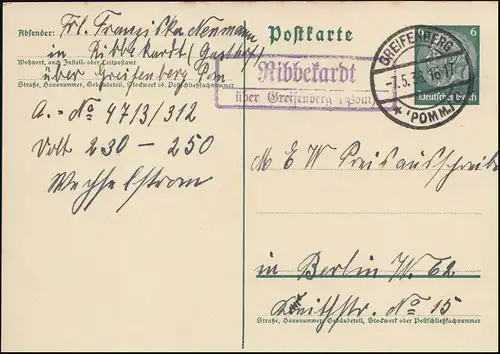 Absender: Frl. Franziska Neumann
in Ribbekardt (Gasthof)
Wohnort, auch Zustell- oder Leitpostamt
über Greifenberg Pom
Straße, Hausnummer, Gebäudeteil, Stockwerk od. Postschließfachnummer
A.- No 4713/312
Volt 230 - 250
Wechselstrom
Postkarte
6
Deutsches Reich
GREIFENBERG
-7.5.35.16-17
* (POMM.)
Ribbekardt
über Greifenberg (Pom)
M E W Preisausschreiben
in Berlin W. 62
Keithstr. No 15
Straße, Hausnummer, Gebäudeteil, Stockwerk oder Postschließfachnummer